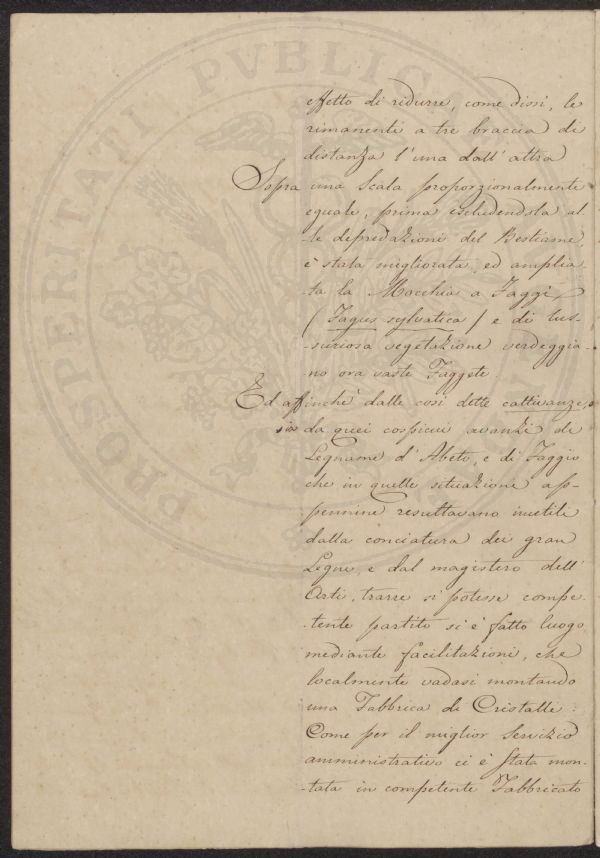 effetto di ridurre, come dissi, le
rimanenti a tre braccia di
distanza l'una dall'altra
Sopra una Scala proporzionalmente
eguale, prima escludendola al-
-le depredazioni del Bestiame,
è stata migliorata, ed amplia-
-ta la Macchia a Faggi
(Fagus sylvatica) e di lus-
-suriosa vegetazione verdeggia-
-no ora vaste Faggete.
Ed affinchè dalle così dette cattivanze, o
sia da quei cospicui avanzi di
Legname d'Abeto, e di Faggio
che in quelle situazioni ap-
-pennine resultavano inutili
dalla conciatura dei gran
Legni, e dal magistero dell'
Arti, trarre si potesse compe-
-tente partito si è fatto luogo,
mediante facilitazioni, che
localmente vadasi montando
una Fabbrica di Cristalli:
Come per il miglior Servizio
amministrativo ci è stata mon-
-tata in competente Fabbricato
PROSPERITATI PVBLICAE